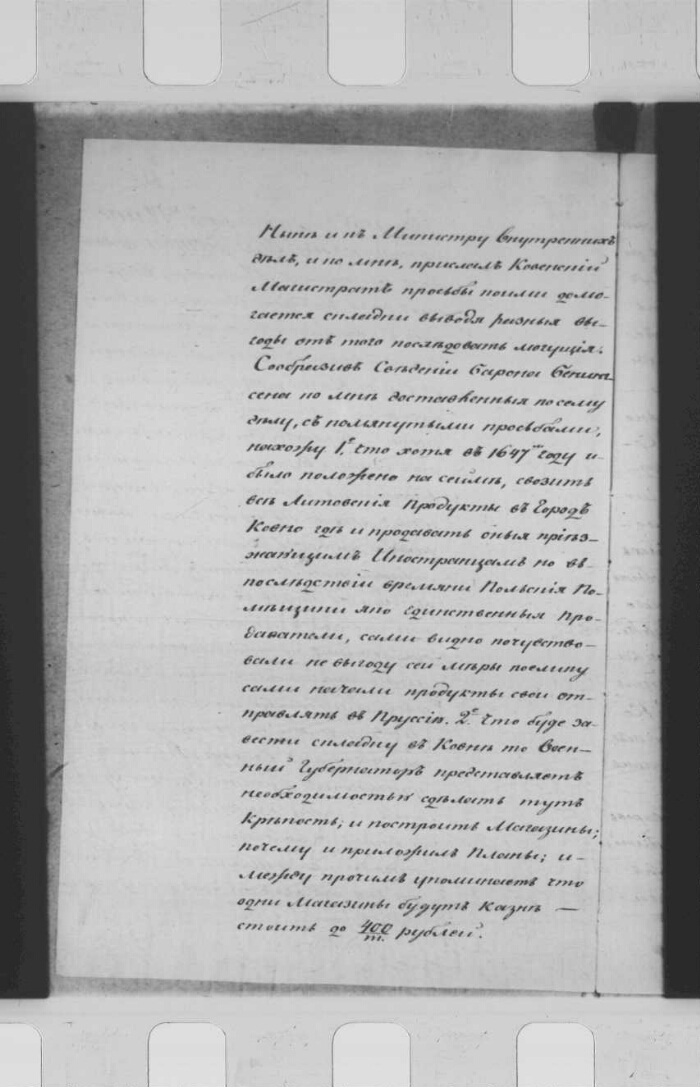 Нынѣ и къ Министру Внутреннихъ
дѣлъ, и ко мнѣ, прислалъ Ковенскій
Магистратъ прозьбы коими домо-
гается складки выводя разныя вы-
годы отъ того послѣдовать могущія.
Сообразивъ Свѣденіи Барона Бениг-
сена ко мнѣ доставленныя по сему
дѣлу, съ помянутыми прозьбами,
нахожу 1е. что хотя въ 1647мъ году и
было положено на сеймѣ, свозить
всѣ Литовскія Продукты въ Городъ
Ковно гдѣ и продавать оныя пріѣз-
жающимъ Иностранцамъ но въ
послѣдствіи времяни Польскія По-
мѣщики яко единственныя про-
даватели, сами видно почувство-
вали не выгоду сей мѣры поелику
сами начали продукты свои от-
правлять въ Пруссію. 2е. Что буде за-
вести складку въ Ковнѣ то Воен-
ный Губернаторъ представляетъ
необходимостью сдѣлать тутъ
Крѣпость; и построить Магазины;
почему и приложилъ Планы; и
между прочимъ упоминаетъ что
одни Магазины будутъ Казнѣ —
стоить до 400/т. рублей.